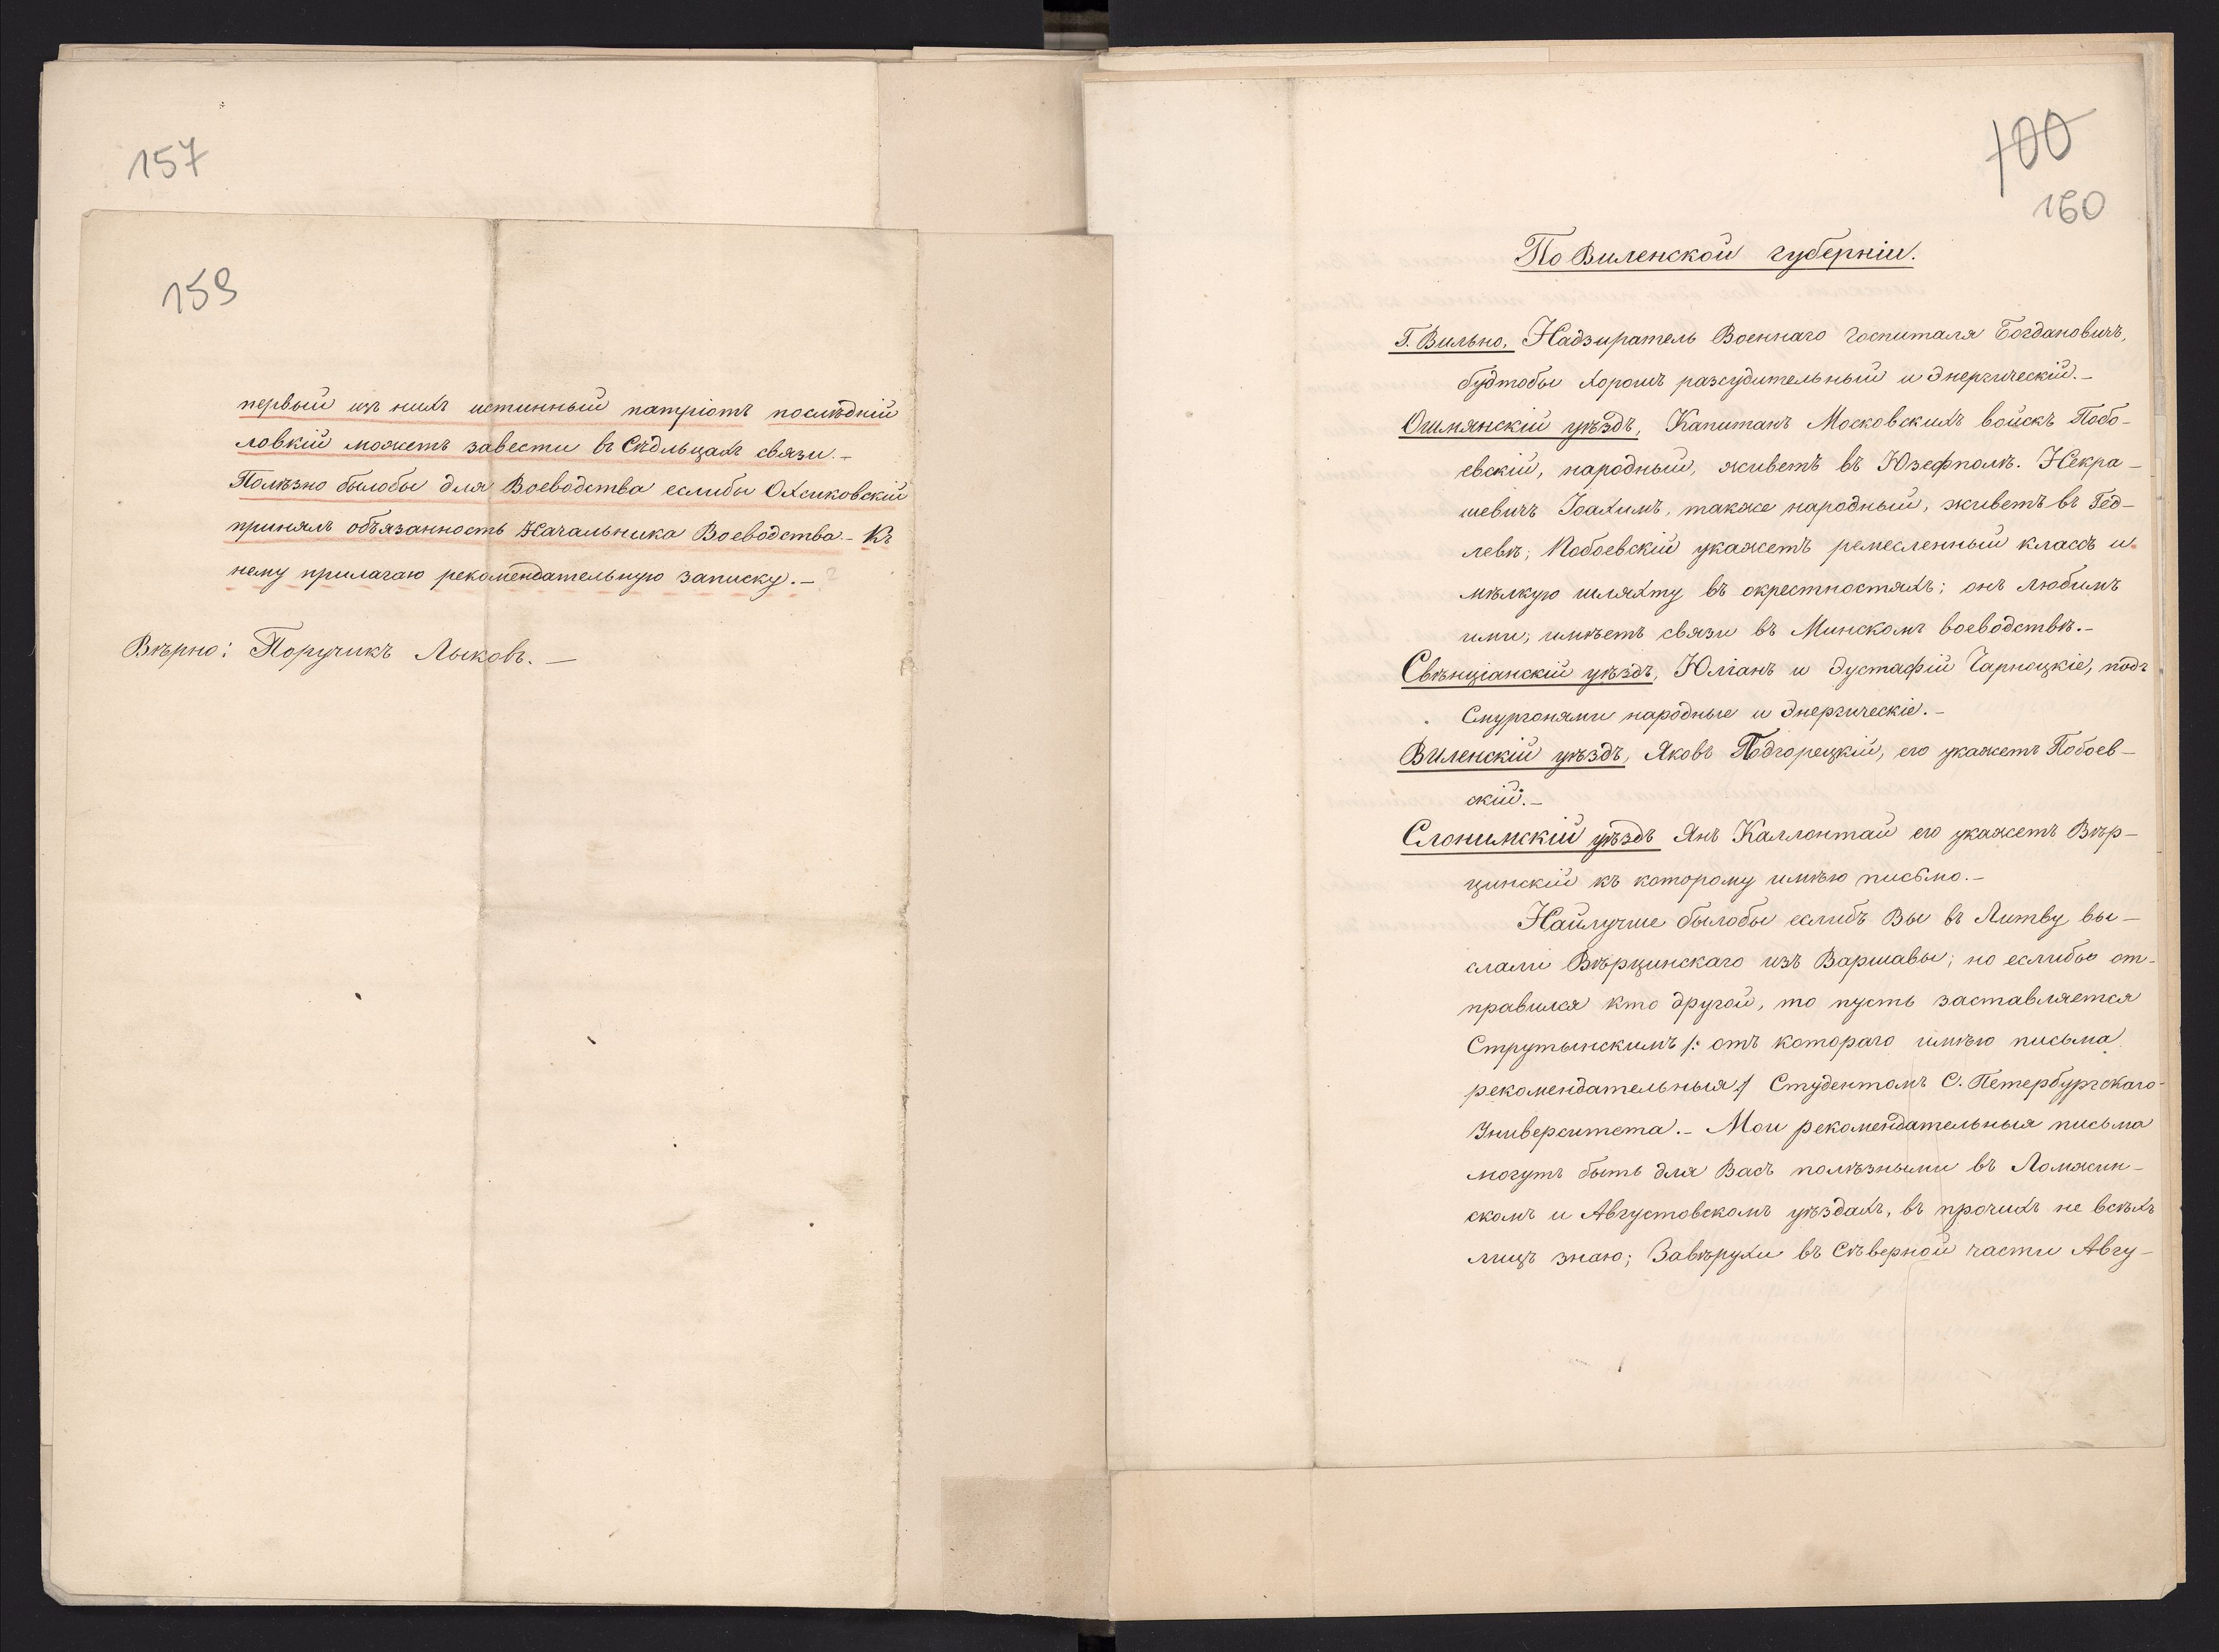 157
159
первый изъ нихъ истинный патріотъ послѣдній
ловкій можетъ завести въ Сѣдльцахъ связи.-
Полѣзно былобы для Воеводства еслибы Охсиковскій
принялъ объязанность Начальника Воеводства.- Къ
нему прилагаю рекомендательную записку.-
Вѣрно: Поручикъ Лыковъ.-
100
160
По Виленской губерніи.
Г. Вильно, Надзиратель Военнаго госпиталя Богдановичъ,
будтобы хорошъ разсудительный и энергическій.-
Ошмянскій уѣздъ, Капитанъ Московскихъ войскъ Побо-
евскій, народный, живетъ въ Юзефполѣ. Некра-
шевичъ Іоахимъ, также народный, живетъ въ Гед-
левѣ; Побоевскій укажетъ ремесленный классъ и
мѣлкую шляхту въ окрестностяхъ; онъ любимъ
ими, имѣетъ связи въ Минскомъ воеводствѣ.-
Свѣнціанскій уѣздъ, Юліанъ и Эустафій Чарноцкіе, подъ
Смургонями народные и энергическіе.-
Виленскій уѣздъ, Яковъ Подгорецкій, его укажетъ Побоев-
скій.-
Слонимскій уѣздъ Янъ Каллонтай его укажетъ Вѣр-
цинскій къ которому имѣю письмо.-
Найлучше былобы еслибъ Вы въ Литву вы-
слали Вѣрцинскаго изъ Варшавы; но еслибы от-
правился кто другой, то пусть заставляется
Струтынскимъ /: отъ котораго имѣю письма
рекомендательныя :/ Студентомъ С. Петербургскаго
Университета.- Мои рекомендательныя письма
могутъ быть для Васъ полѣзными въ Ломжин-
скомъ и Августовскомъ уѣздахъ, въ прочихъ не всѣхъ
лицъ знаю; Завѣрухи въ Сѣверной части Авгу-